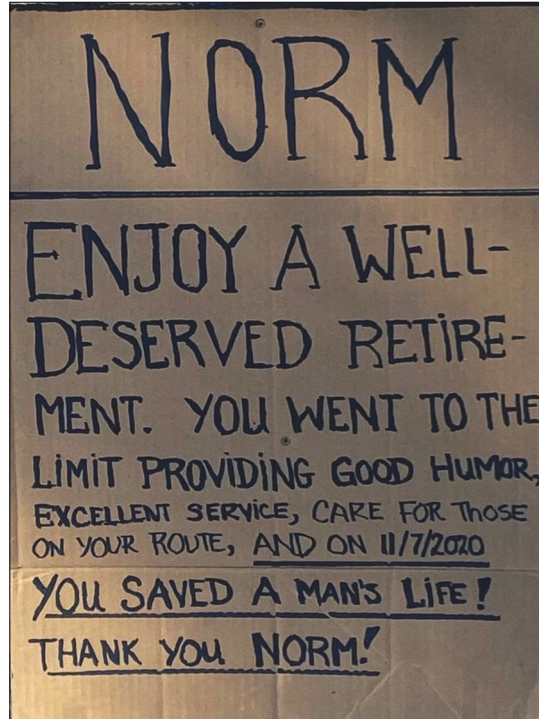 NORM
ENJOY A WELL-
DESERVED RETIRE-
MENT. YOU WENT TO THE
LIMIT PROVIDING GOOD HUMOR,
EXCELLENT SERVICE, CARE FOR THOSE
ON YOUR ROUTE, AND ON 11/7/2020
YOU SAVED A MAN'S LIFE!
THANK YOU NORM!